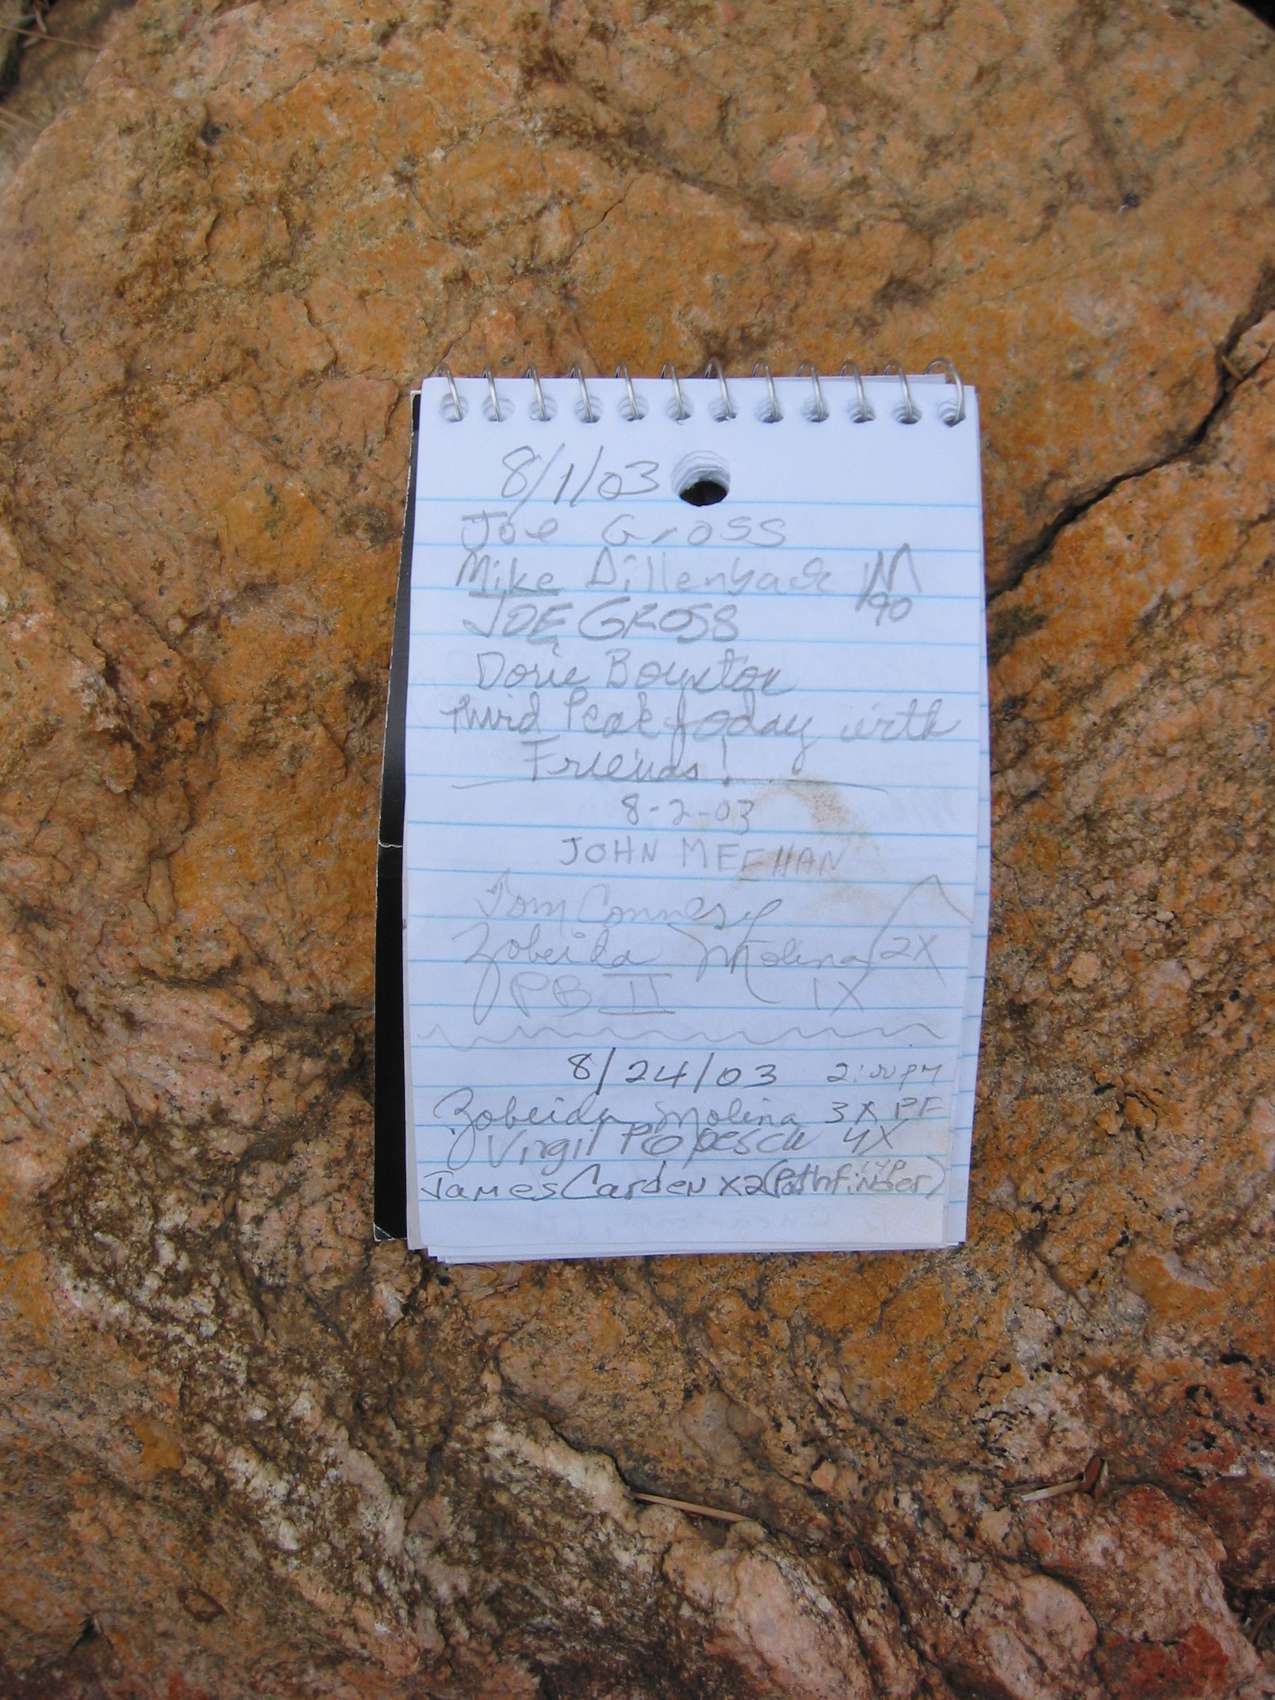 8/1/03
Joe Gross
Mike Dillenback
JOE GROSS
Dorie Boynton
Third Peak today with
Friends!
8-2-03
JOHN MEEHAN
Tom Connery
Zobeida Molina 2X
PB II 1X
8/24/03 2:00 PM
Zobeida Molina 3X PF
Virgil Popescu 4X
James Carden X2 (Pathfinder)